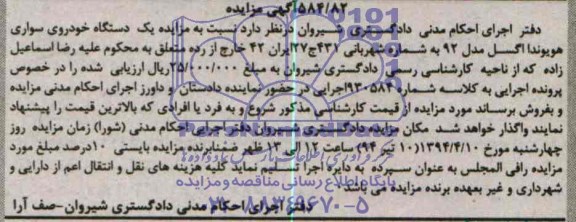 ۵۸۴/۸۲ آگهی مزایده
دفتر اجرای احکام مدنی دادگستری شیروان درنظر دارد نسبت به مزایده یک دستگاه خودروی سواری
هویوندا اکسل مدل ۹۲ به شماره شهربانی ۴۳۲ج۲۷ایران ۴۲ خارج از رده متعلق به محکوم علیه رضا اسماعیل
زاده که از ناحیه کارشناسی رسمی دادگستری شیروان به مبلغ ۲۵/۰۰۰/۰۰۰ریال ارزیابی شده را در خصوص
پرونده اجرایی به کلاسه شماره ۹۳۰۵۸۴اجرایی در حضور نماینده دادستان و داورز اجرای احکام مدنی مزایده
و بفروش برساند مورد مزایده از قیمت کارشناسی مذکور شروع و به فرد یا افرادی که بالاترین قیمت را پیشنهاد
نمایند واگذار خواهد شد مکان مزایده دادگستری شیروان دفتر اجرای احکام مدنی (شورا) زمان مزایده روز
چهارشنبه مورخ ۱۳۹۴/۴/۱۰(۱۰ تیر ۹۴) ساعت ۱۲ الی ۱۳ ظهر ضمنابرنده مزایده بایستی ۱۰درصد مبلغ مورد
مزایده رافی المجلس به عنوان سپرده به دایره اجرا تسلیم نماید کلیه هزینه های نقل و انتقال اعم از دارایی و
شهرداری و غیر بعهده برنده مزایده می باشد
دفتر اجرای احکام مدنی دادگستری شیروان-صف آرا
پایگاه اطلاع رسانی مناقصه ومزایده